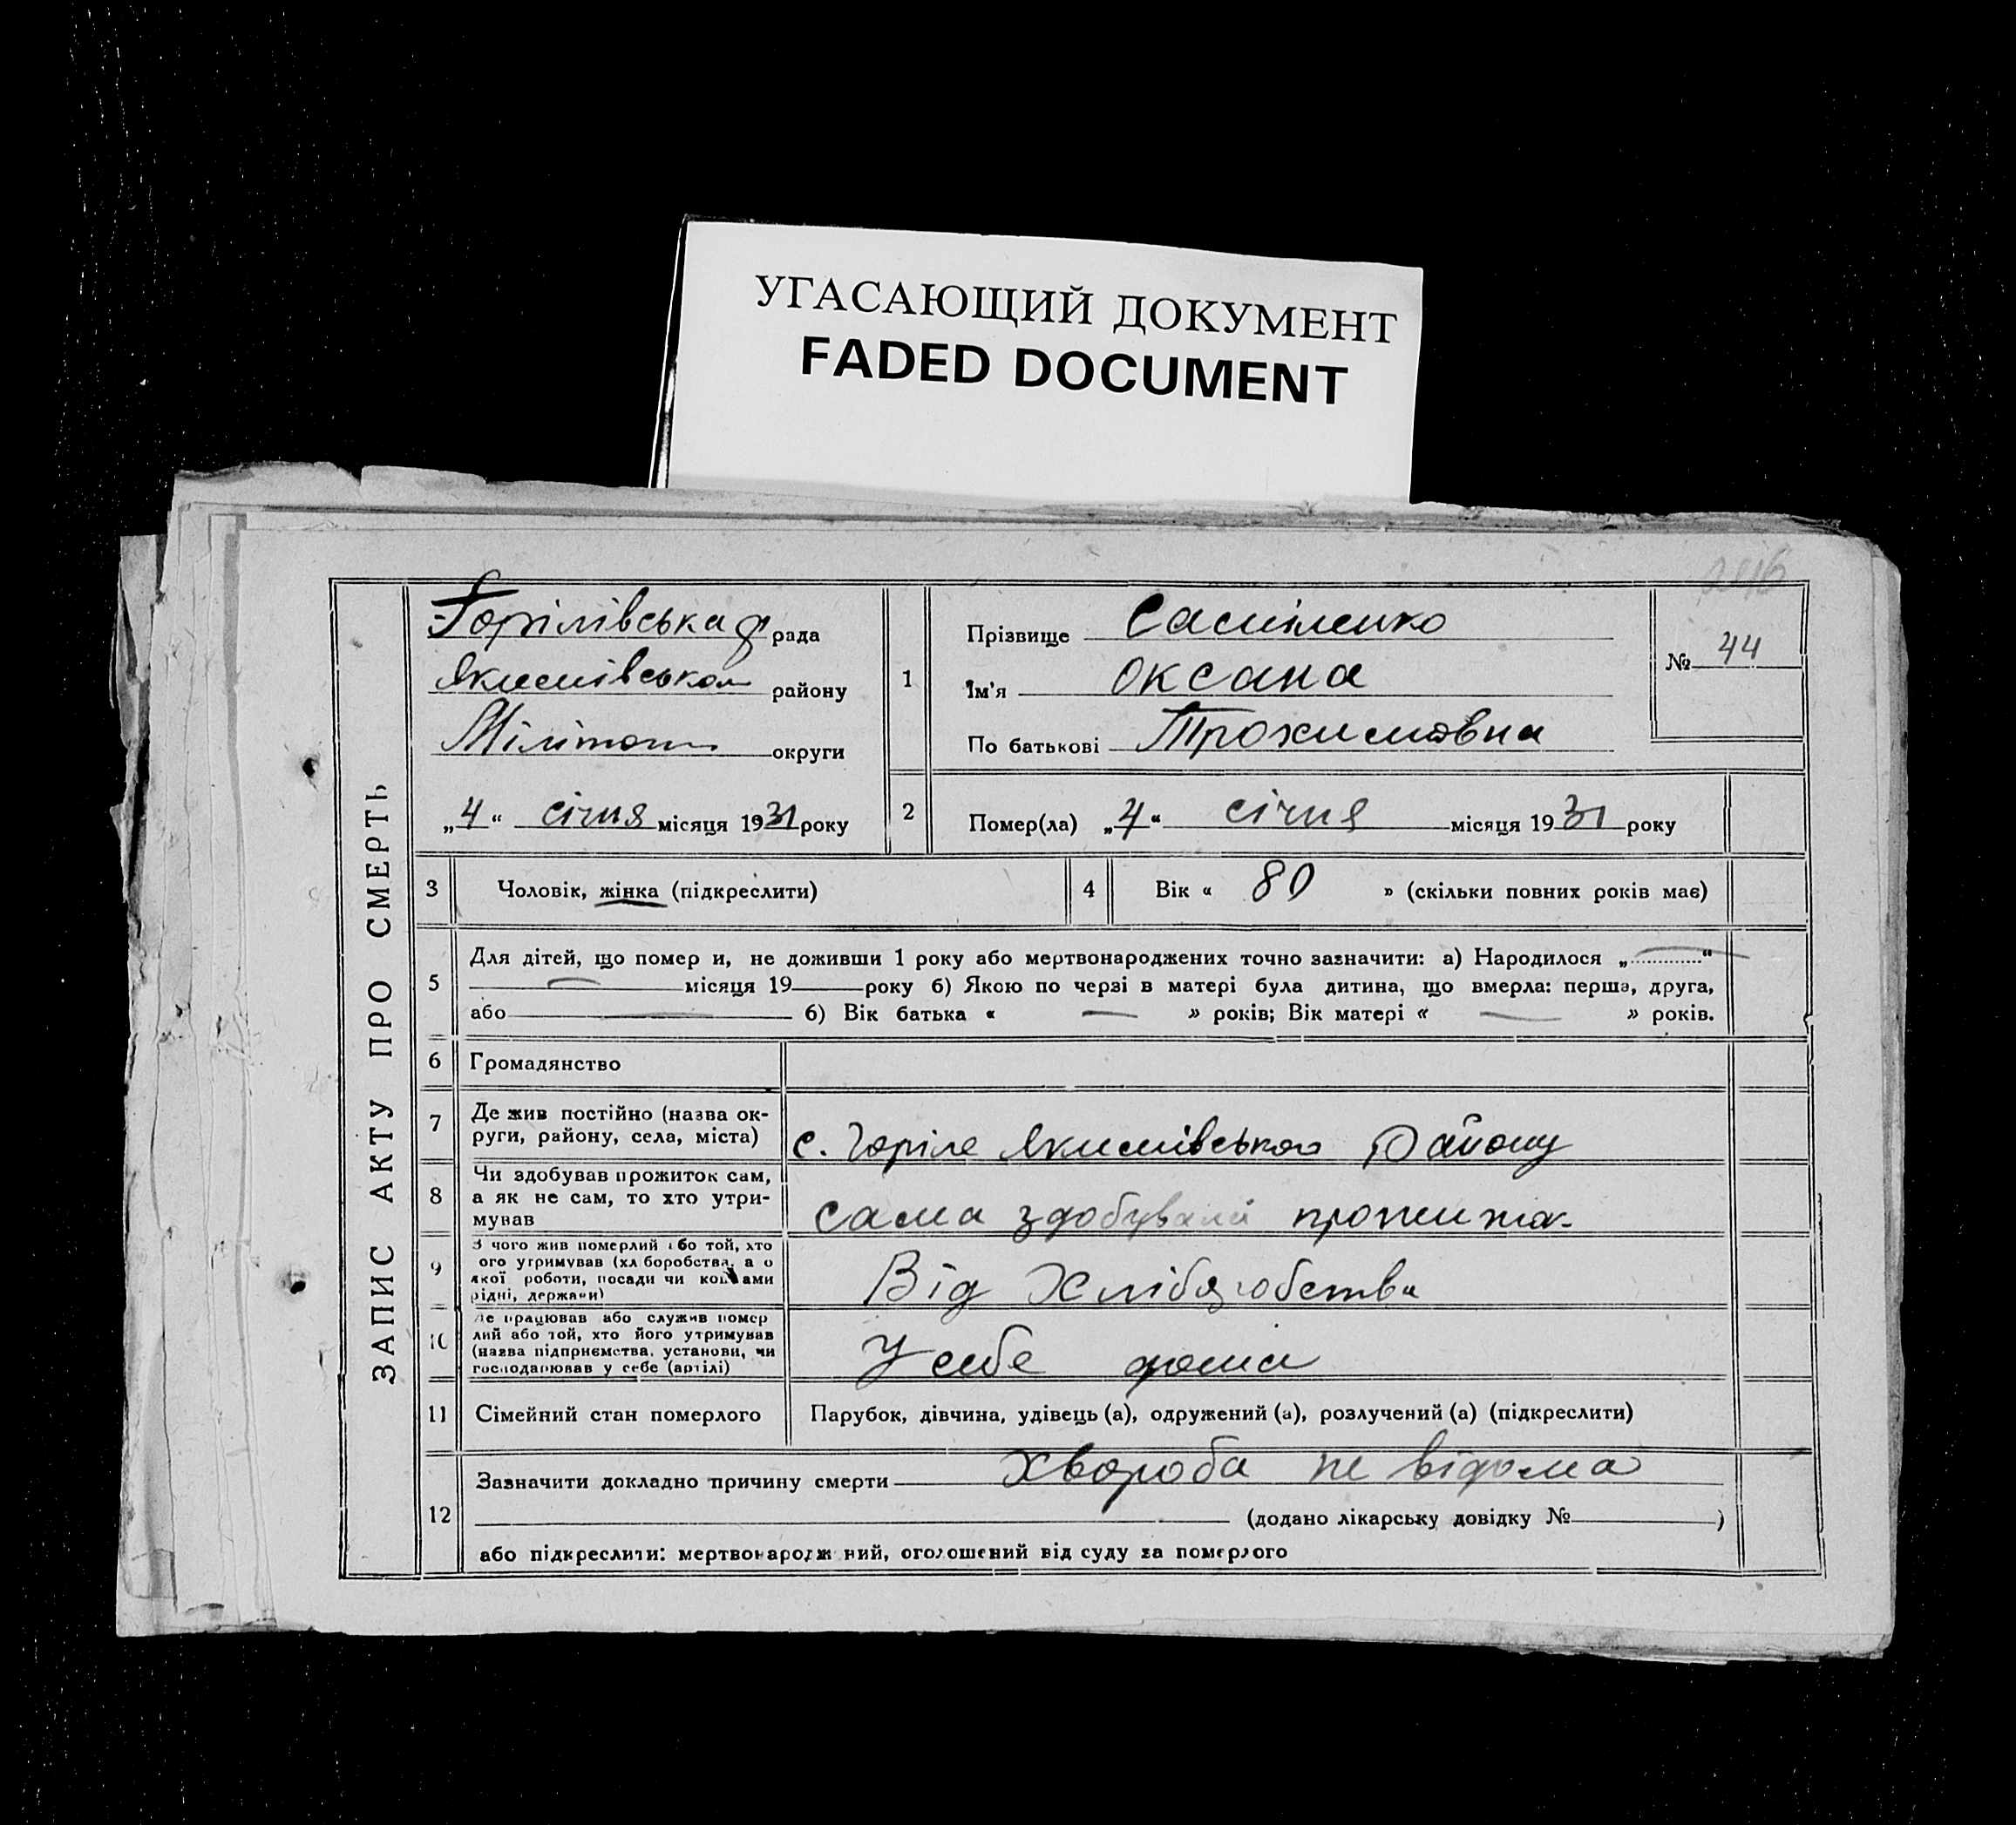 УГАСАЮЩИЙ ДОКУМЕНТ
FADED DOCUMENT
246
ЗАПИС АКТУ ПРО СМЕРТЬ
Горілівська рада
Якимівськог району
Мілітоп округи
„4“ січня місяця 1931 року
1
Прізвище Самійленко
Їм'я Оксана
По батькові Трохимовна
№ 44
2
Помер(ла) „4“ січня місяця 1931 року
3 Чоловік, жінка (підкреслити)
4 Вік « 80 » (скільки повних років має)
5
Для дітей, що помер и, не доживши 1 року або мертвонароджених точно зазначити: а) Народилося „ “
місяця 19 року б) Якою по черзі в матері була дитина, що вмерла: перша, друга,
або б) Вік батька « » років; Вік матері « » років.
6 Громадянство
7
Де жив постійно (назва ок-
руги, району, села, міста)
с. Горіле Якимівського Району
8
Чи здобував прожиток сам,
а як не сам, то хто утри-
мував
сама здобувала прожиток
9
З чого жив померлий або той, хто
ого утримував (хл боробства, а о
якої роботи, посади чи кош ами
рідні, держави)
Від Хліборобства
10
Де працював або служив помер
лий або той, хто його утримував
(назва підприємства, установи, чи
господарював у себе (артілі)
У себе дома
11 Сімейний стан померлого
Парубок, дівчина, удівець (а), одружений (а), розлучений (а) (підкреслити)
12
Зазначити докладно причину смерти хвороба не відома
(додано лікарську довідку № )
або підкреслити: мертвонародж ний, оголошений від суду за померлого